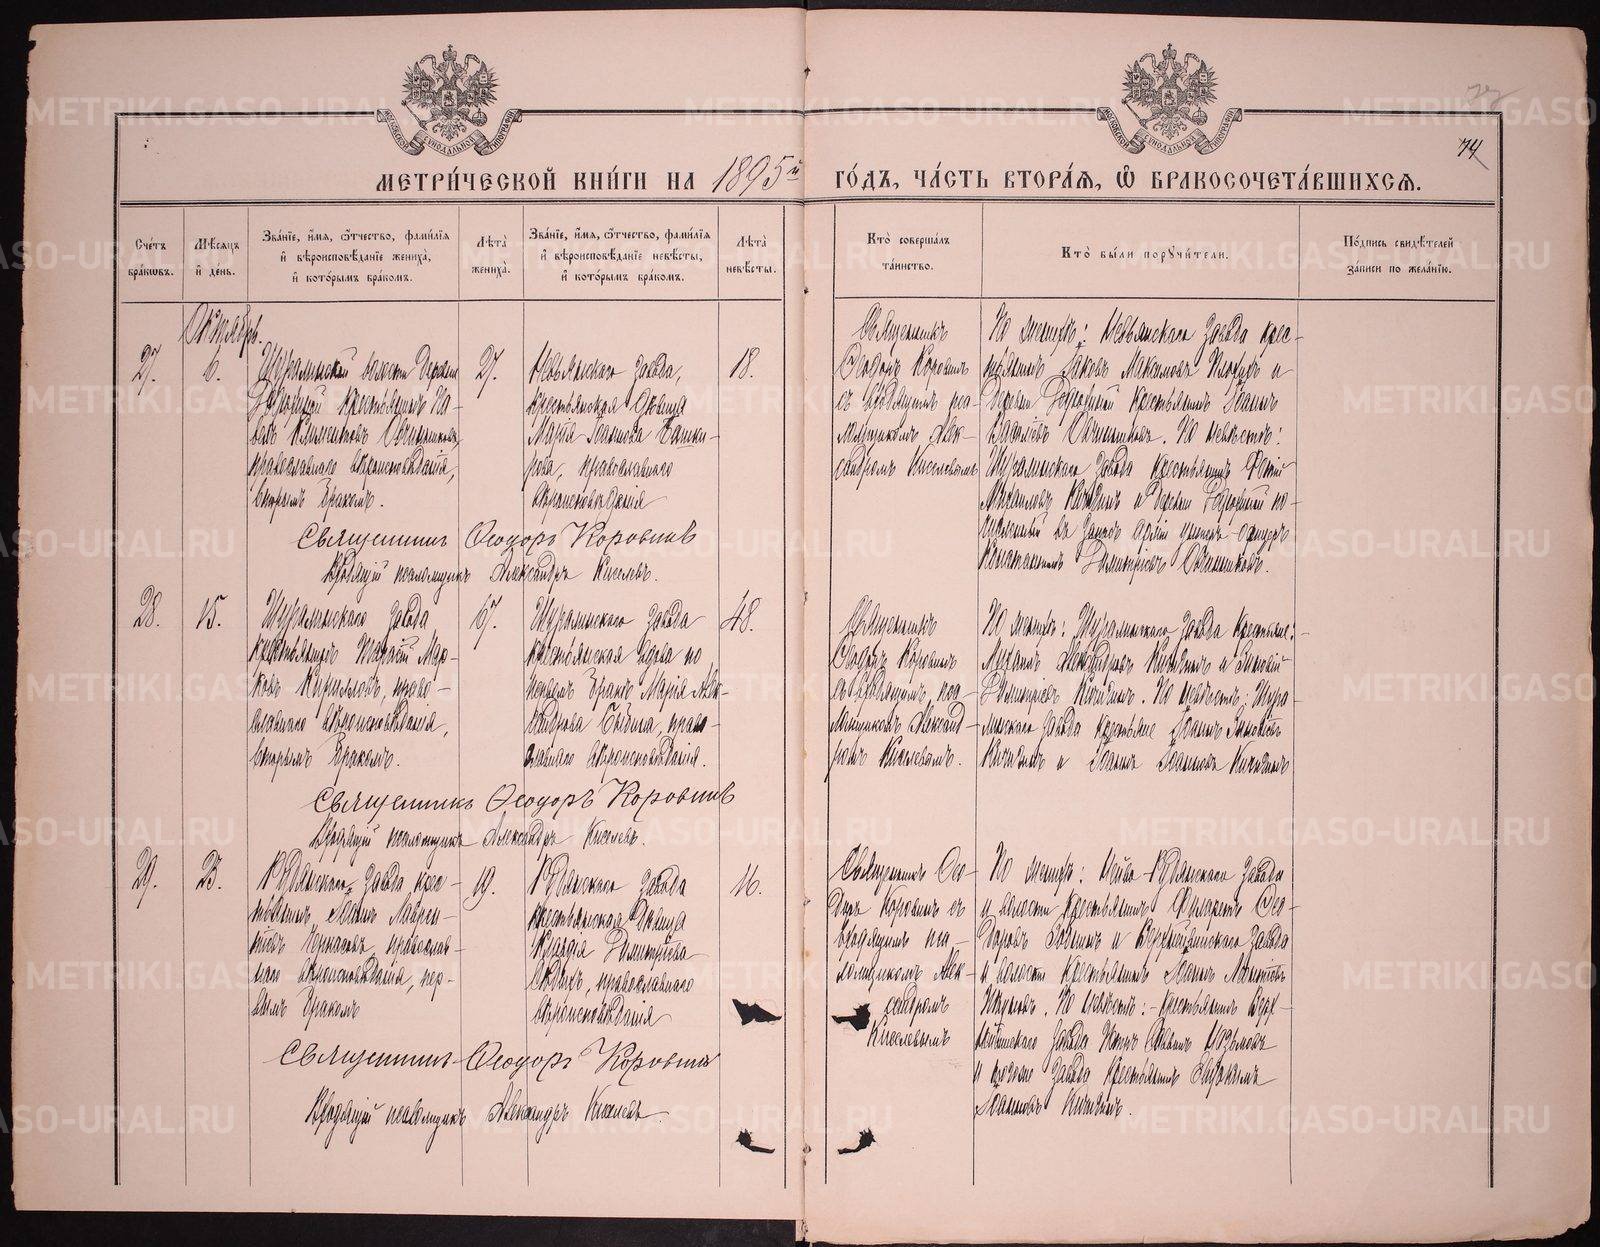 МЕТРИ́ЧЕСКОЙ КНИ́ГИ НА 1895й ГО́ДЪ, ЧА́СТЬ ВТОРА́Я, Ѡ БРАКОСОЧЕТА́ВШИХСЯ.
74
Сче́тъ бра́кωвъ.
Мѣ́сѧцъ и҆ де́нь.
Зва́нїе, и҆́мѧ, ѻ҆́тчество, фами́лїѧ и҆ вѣроисповѣ́данїе жениха̀, и҆ кото́рымъ бра́комъ.
Лѣ́та жениха̀.
Зва́нїе, и҆́мѧ, ѻ҆́тчество, фами́лїѧ и҆ вѣроисповѣ́данїе невѣ́сты, и҆ кото́рымъ бра́комъ.
Лѣ́та невѣ́сты.
Кто̀ соверша́лъ та́инство.
Кто̀ бы́ли порꙋчи́тели.
По́дпись свидѣ́телей за́писи по жела́нїю.
Октябрь.
27.
6.
Шуралинской волости Деревни
крестьянинъ Па-
велъ Климентовъ Овчинниковъ,
православнаго вѣроисповѣданія,
вторымъ бракомъ.
27.
Невьянскаго завода,
крестьянская дѣвица
Марія Іоаннова Башки-
рова, православнаго
вѣроисповѣданія
18.
Священникъ
Ѳеодоръ Коровинъ
съ псa-
ломщикомъ Алек-
сандромъ Киселевымъ
По женихѣ: Невьянскаго завода крес-
тьянинъ Іаковъ Максимовъ и
Деревни крестьянинъ Іоаннъ
Васильевъ Овчинниковъ. По невѣстѣ:
Шуралинскаго завода крестьянинъ
Михаиловъ Кичигинъ и Деревни
въ запасъ арміи унтеръ-офицеръ
Константинъ Димитріевъ Овчинниковъ.
Священникъ Ѳеодоръ Коровинъ
псаломщикъ Александръ Киселевъ.
28.
15.
Шуралинскаго завода
крестьянинъ Мар-
ковъ Кирилловъ, право-
славнаго вѣроисповѣданія,
вторымъ бракомъ.
67.
Шуралинскаго завода
крестьянская вдова по
первомъ бракѣ Марія Алек-
право-
славнаго вѣроисповѣданія.
48.
Священникъ
Ѳеодоръ Коровинъ
съ пса-
ломщикомъ Александ-
ромъ Киселевымъ.
По женихѣ: Шуралинскаго завода крестьяне:
Михаилъ Александровъ Кичигинъ и
Димитріевъ Кичигинъ. По невѣстѣ: Шура-
линскаго завода крестьяне Іоаннъ
Кичигинъ и Іоаннъ Іоанновъ Кичигинъ
Священникъ Ѳеодоръ Коровинъ
псаломщикъ Александръ Киселевъ.
29.
23.
Рудянскаго завода крес-
тьянинъ Іоаннъ Лаврен-
тіевъ Черкасовъ, православ-
наго вѣроисповѣданія, пер-
вымъ бракомъ
19.
Рудянскаго завода
крестьянская дѣвица
Клавдія Димитріева
православнаго
вѣроисповѣданія
16.
Священникъ Ѳео-
доръ Коровинъ съ
пса-
ломщикомъ Алек-
сандромъ
Киселевымъ
По женихѣ: Нейво-Рудянскаго завода
и волости крестьянинъ Филаретъ Ѳео-
доровъ и Верхнейвинскаго завода
и волости крестьянинъ Іоаннъ
По невѣстѣ: крестьянинъ Верх-
нейвинскаго завода
и завода крестьянинъ Евдокимъ
Іоанновъ Кичигинъ.
Священникъ Ѳеодоръ Коровинъ
псаломщикъ Александръ Киселевъ
METRIKI.GASO-URAL.RU